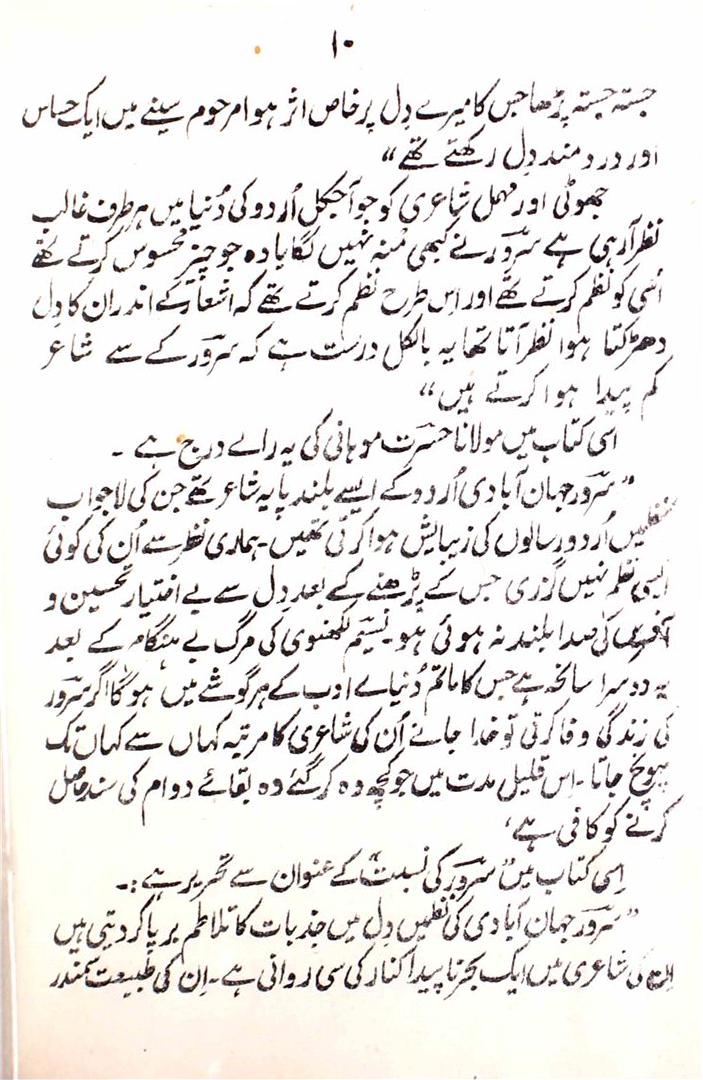 ۱۰
جستہ جستہ پڑھا جس کا میرے دِل پر خاص اثر ہوا مرحوم سینے میں ایک حساس
اور درد مند دِل رکھتے تھے "
جھوٹی اور مہمل شاعری کو جو آجکل اُردو کی دُنیا میں ہر طرف غالب
نظر آرہی ہے سرورؔ نے کبھی مُنہ نہیں لگایا وہ جو چیز محسوس کرتے تھے
اُسی کو نظم کرتے تھے اور اِس طرح نظم کرتے تھے کہ اشعار کے اندر ان کا دِل
دھڑکتا ہوا نظر آتا تھا یہ بالکل درست ہے کہ سرورؔ کے سے شاعر
کم پیدا ہوا کرتے ہیں "
اسی کتاب میں مولانا حسرتؔ موہانی کی یہ رائے درج ہے ۔
" سرورؔ جہان آبادی اُردو کے ایسے بلند پایہ شاعر تھے جن کی لاجواب
نظمیں اُردو رسالوں کی زیبایش ہوا کرتی تھیں ۔ ہماری نظر سے اُن کی کوئی
ایسی نظم نہیں گزری جس کے پڑھنے کے بعد دِل سے بے اختیار تحسین و
آفریں کی صدا بلند نہ ہوئی ہو ۔ نسیمؔ لکھنوی کی مرگ بے ہنگام کے بعد
یہ دوسرا سانحہ ہے جس کا ماتم دُنیائے ادب کے ہر گوشے میں ہوگا اگر سرورؔ
کی زندگی وفا کرتی تو خدا جانے اُن کی شاعری کا مرتبہ کہاں سے کہاں تک
پہونچ جاتا ۔ اِس قلیل مدت میں جو کچھ وہ کر گئے وہ بقائے دوام کی سند حاصل
کرنے کو کافی ہے '
اِسی کتاب میں "سرورؔ کی نسبت" کے عنوان سے تحریر ہے :۔
" سرورؔ جہان آبادی کی نظمیں دِل میں جذبات کا تلاطم برپا کر دیتی ہیں
ان کی شاعری میں ایک بحرِ ناپیدا کنار کی سی روانی ہے ۔ اِن کی طبیعت سمندر